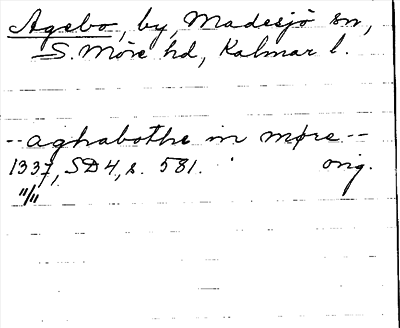 Agebo, by, Madesjö sn,
S. Möre hd, Kalmar l.
-- aghabothe in møre --
1337, SD4, s. 581. orig.
11/11